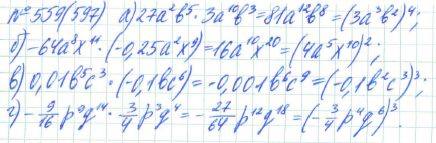 №559(597) а) 27a²b⁵ · 3a¹⁰b³ = 81a¹²b⁸ = (3a³b²)⁴;
б) -64a⁸x¹¹ · (-0,25a²x⁹) = 16a¹⁰x²⁰ = (4a⁵x¹⁰)²;
в) 0,01b⁵c³ · (-0,1bc⁶) = -0,001b⁶c⁹ = (-0,1b²c³)³;
г) -9/16 p⁹q¹⁴ · 3/4 p³q⁴ = -27/64 p¹²q¹⁸ = (-3/4 p⁴q⁶)³.